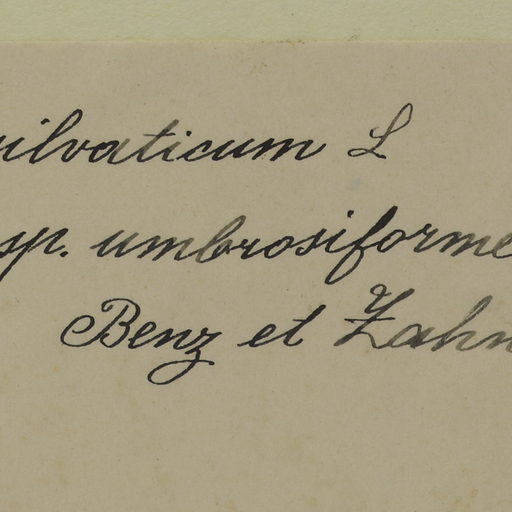 silvaticum L
sp. umbrosiforme
Benz et Zahn